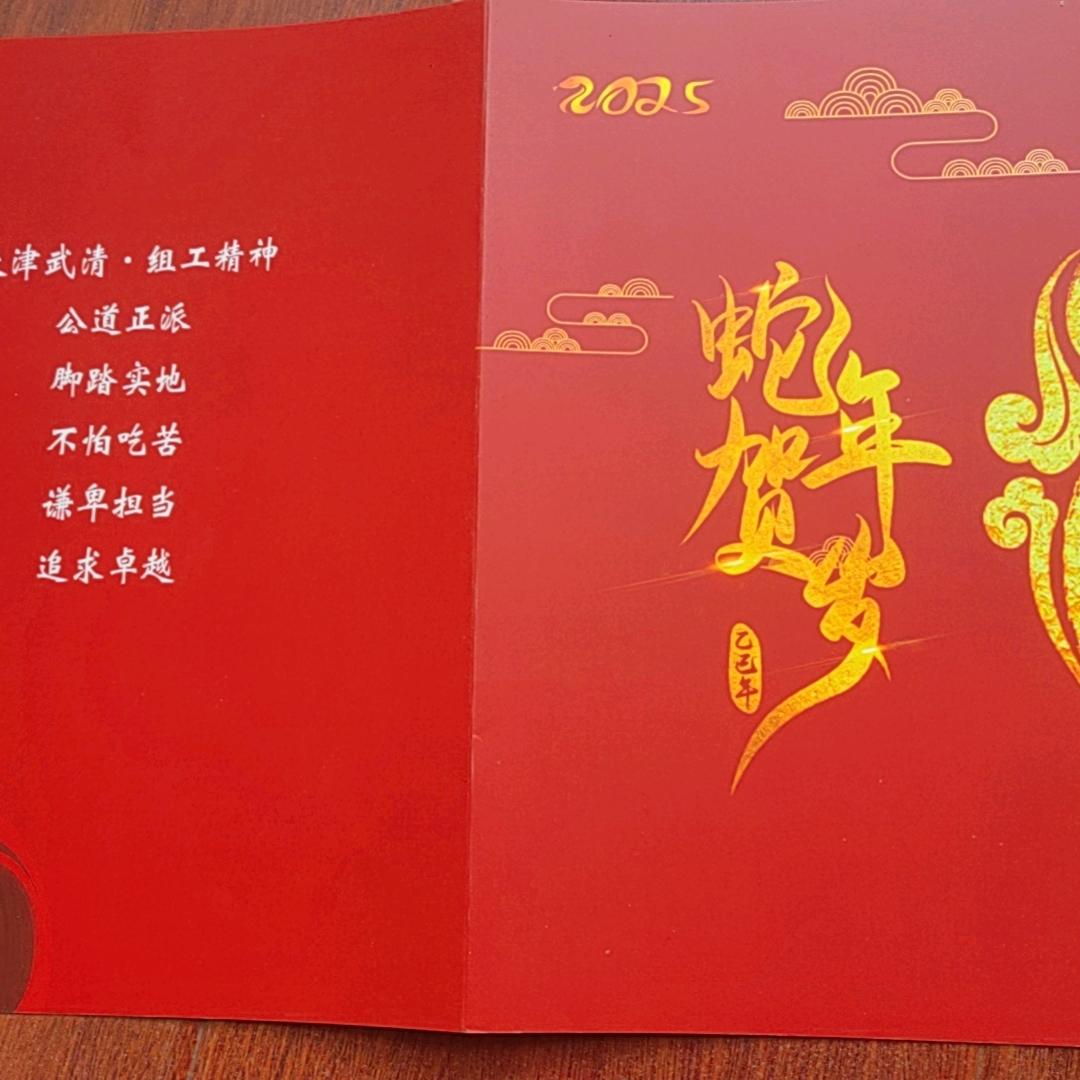 津武清·组工精神
公道正派
脚踏实地
不怕吃苦
谦卑担当
追求卓越
2025
蛇年
贺岁
乙巳年